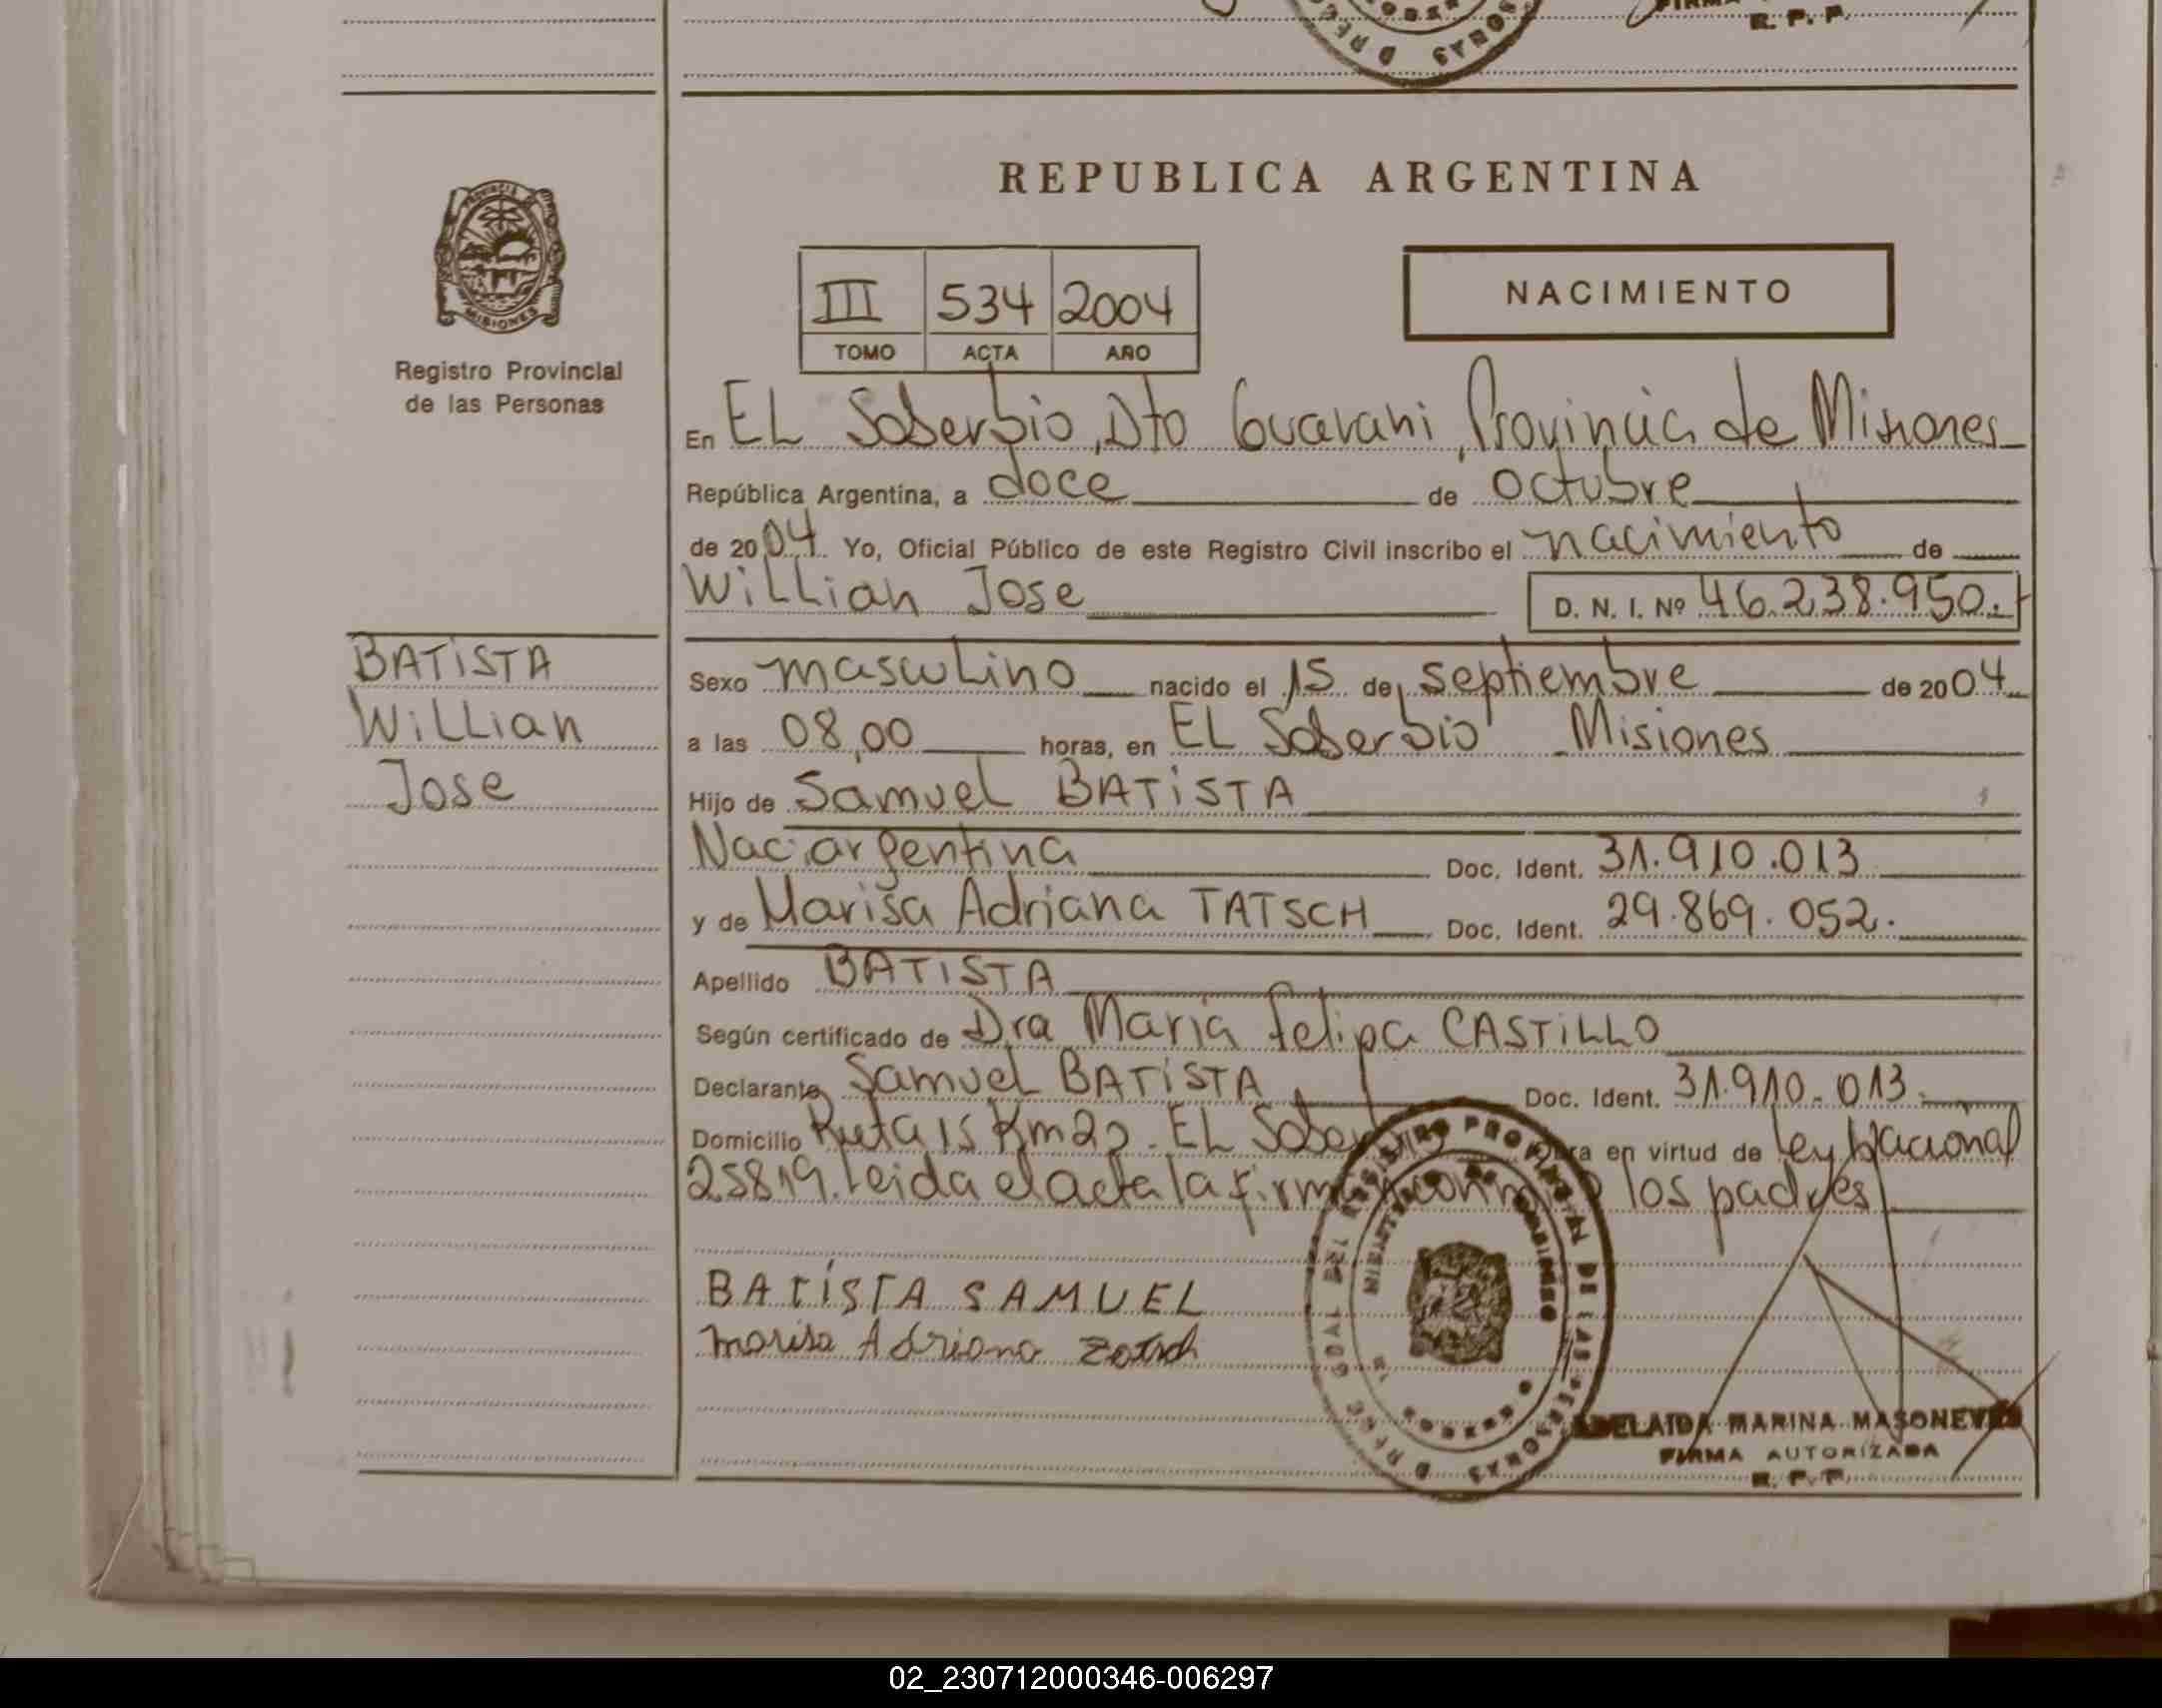 FIRMA
R. P. P.
REPUBLICA ARGENTINA
PROVINCIA
MISIONES
Registro Provincial
de las Personas
III 534 2004
TOMO ACTA AÑO
NACIMIENTO
En EL Soberbio, Dto Guarani, Provincia de Misiones
República Argentina, a doce de octubre
de 2004. Yo, Oficial Público de este Registro Civil inscribo el nacimiento de
Willian Jose D. N. I. Nº 46.238.950.-
BATISTA
Willian
Jose
Sexo masculino nacido el 15 de septiembre de 2004
a las 08,00 horas, en EL Soberbio Misiones
Hijo de Samuel BATISTA
Nac. argentina Doc. Ident. 31.910.013
y de Marisa Adriana TATSCH Doc. Ident. 29.869.052.
Apellido BATISTA
Según certificado de Dra Maria Felipa CASTILLO
Declarante Samuel BATISTA Doc. Ident. 31.910.013.
Domicilio Ruta 15 Km 22. EL Soberbio Obra en virtud de Ley Nacional
25819. Leida el acta la firman conmigo los padres
BATISTA SAMUEL
Marisa Adriana
REGISTRO PROVINCIAL DE LAS PERSONAS
ADELAIDA MARINA MASONEVES
FIRMA AUTORIZADA
R. P. P.
02_230712000346-006297